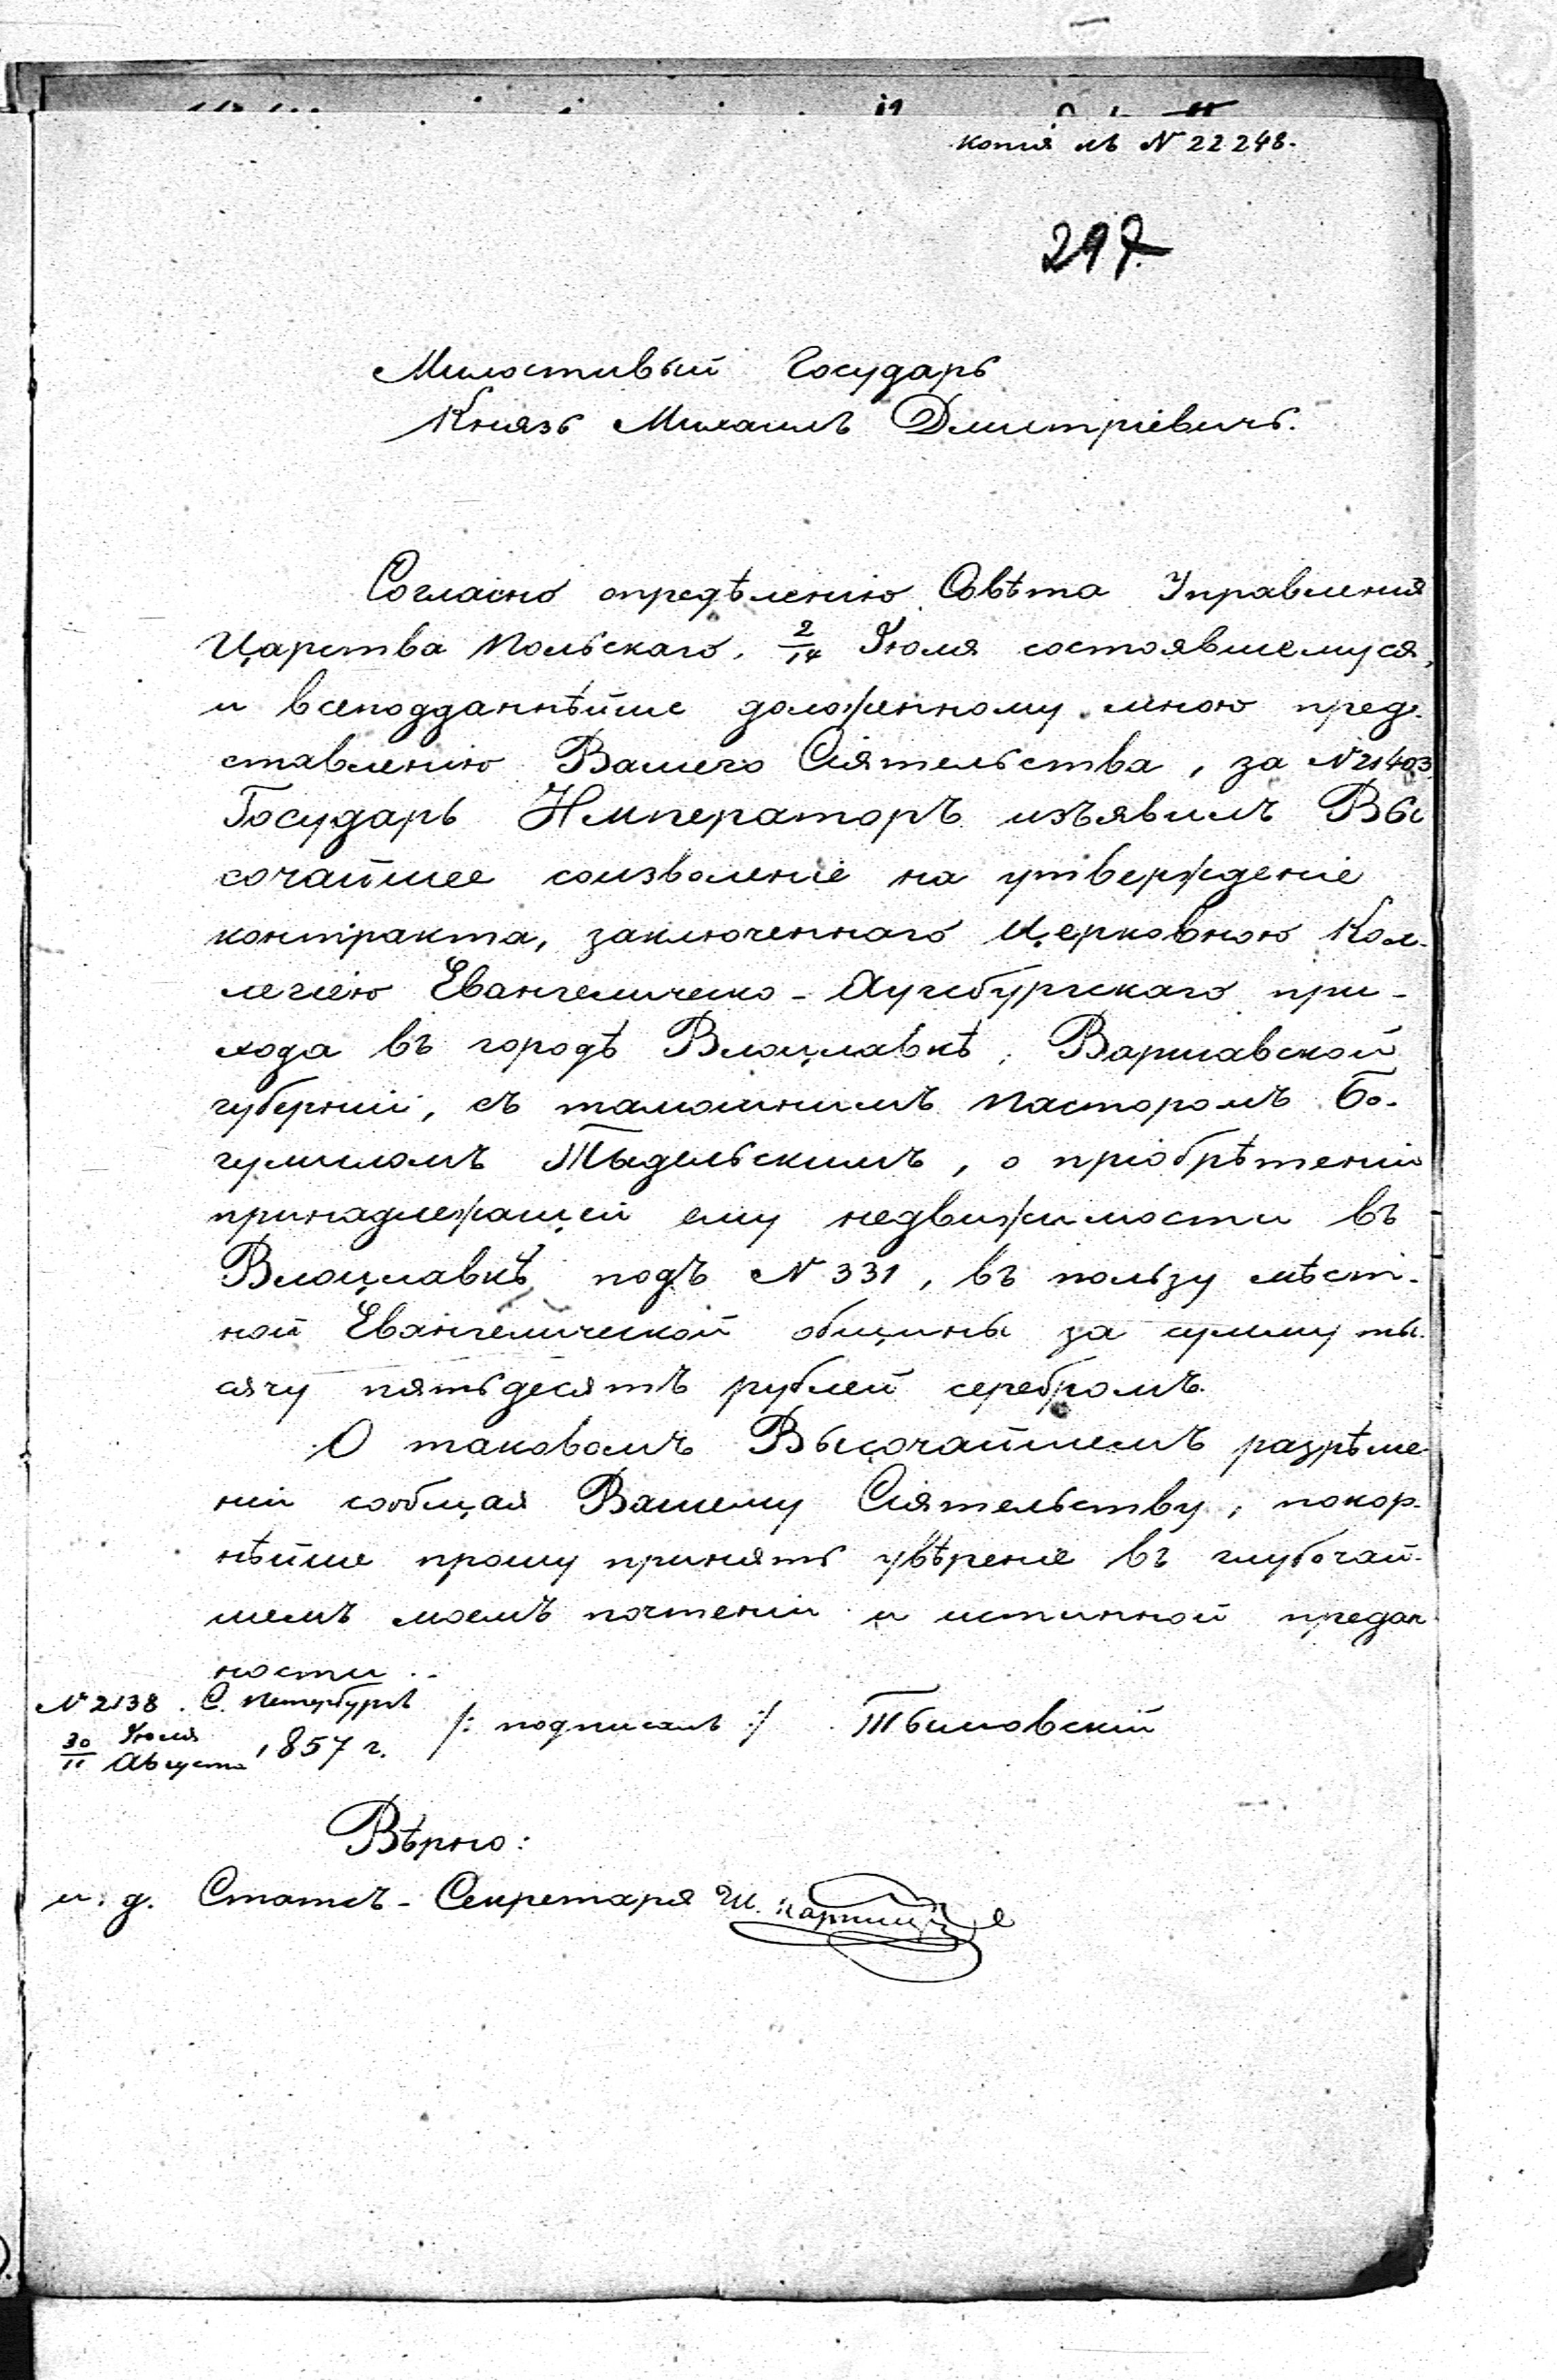 копія къ № 22248.
297
Милостивый Государь
Князь Михаилъ Дмитріевичъ.
Согласно опредѣленію Совѣта Управленія
Царства Польскаго, 2/14 Іюля состоявшемуся,
и всеподданнѣйше доложенному мною пред-
ставленію Вашего Сіятельства, за № 21403,
Государь Императоръ изъявилъ Вы
сочайшее соизволеніе на утвержденіе
контракта, заключеннаго Церковною Кол-
легіею Евангелическо-Аугсбургскаго при-
хода въ городѣ Влоцлавкѣ, Варшавской
губерніи, съ тамошнимъ Пасторомъ Бо-
гумиломъ Тыдельскимъ, о пріобрѣтеніи
принадлежащей ему недвижимости въ
Влоцлавкѣ подъ № 331, въ пользу мѣст-
ной Евангелической общины за сумму ты-
сячу пятьдесятъ рублей серебромъ.
О таковомъ Высочайшемъ разрѣше-
ніи сообщая Вашему Сіятельству, покор-
нѣйше прошу принять увѣреніе въ глубочай-
шемъ моемъ почтеніи и истинной предан-
ности..
№ 2138. С. Петербургъ
30 Іюля / 11 Августа 1857 г. /: подписалъ :/ Тымовскій
Вѣрно:
и. д. Статсъ-Секретаря